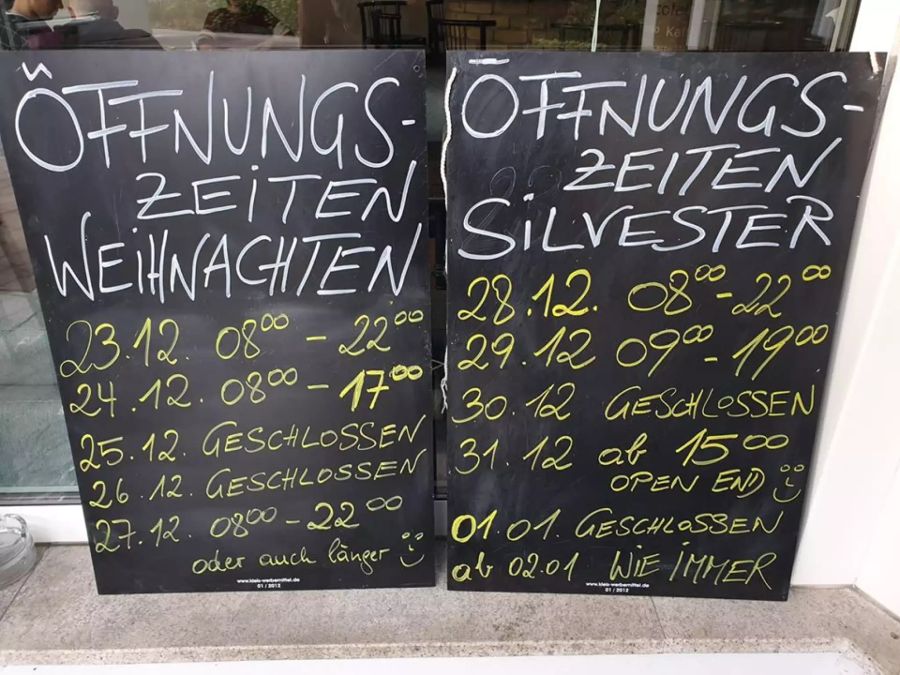 ÖFFNUNGS-
ZEITEN
WEIHNACHTEN
23.12. 08⁰⁰ - 22⁰⁰
24.12. 08⁰⁰ - 17⁰⁰
25.12. GESCHLOSSEN
26.12. GESCHLOSSEN
27.12. 08⁰⁰ - 22⁰⁰
oder auch länger
www.kleib-werbemittel.de
01 / 2012
ÖFFNUNGS-
ZEITEN
SILVESTER
28.12. 08⁰⁰ - 22⁰⁰
29.12 09⁰⁰ - 19⁰⁰
30.12 GESCHLOSSEN
31.12 ab 15⁰⁰
OPEN END
01.01. GESCHLOSSEN
ab 02.01 WIE IMMER
www.kleib-werbemittel.de
01 / 2012